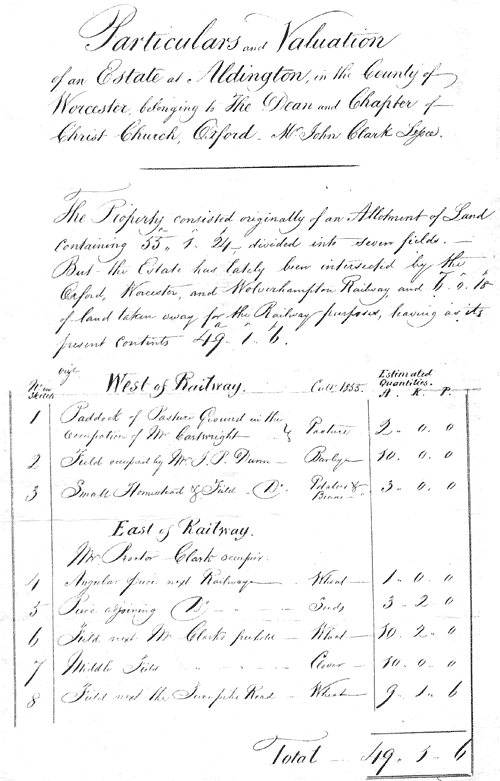 Particulars and Valuation
of an Estate at Aldington, in the County of
Worcester, belonging to The Dean and Chapter of
Christ Church, Oxford. Mr John Clark Lessee.
The Property consisted originally of an Allotment of Land
containing 55 " 1 " 24 – divided into seven fields. –
But the Estate has lately been intersected by the
Oxford, Worcester, and Wolverhampton Railway and
of land taken away for the Railway purposes, leaving as its
present contents 49 . 1 . 6 .
No. on Sketch West of Railway. Cult. 1855. Estimated Quantities. A. R. P.
1 Paddock of Pasture Ground in the
Occupation of Mr Cartwright – Pasture 2 . 0 . 0
2 Field occupied by Mr J. P. Dunn – Barley 10 . 0 . 0
3 Small Homestead & Field – Do. Potatoes & Beans 3 . 0 . 0
East of Railway.
Mr Proctor Clark occupier.
4 Angular piece next Railway – Wheat – 1 . 0 . 0
5 Piece adjoining Do. – Seeds 3 . 2 . 0
6 Field next Mr Clark's freehold – Wheat – 10 . 2 . 0
7 Middle Field Clover – 10 . 0 . 0
8 Field next the Turnpike Road – Wheat – 9 . 1 . 6
Total – 49 . 1 . 6